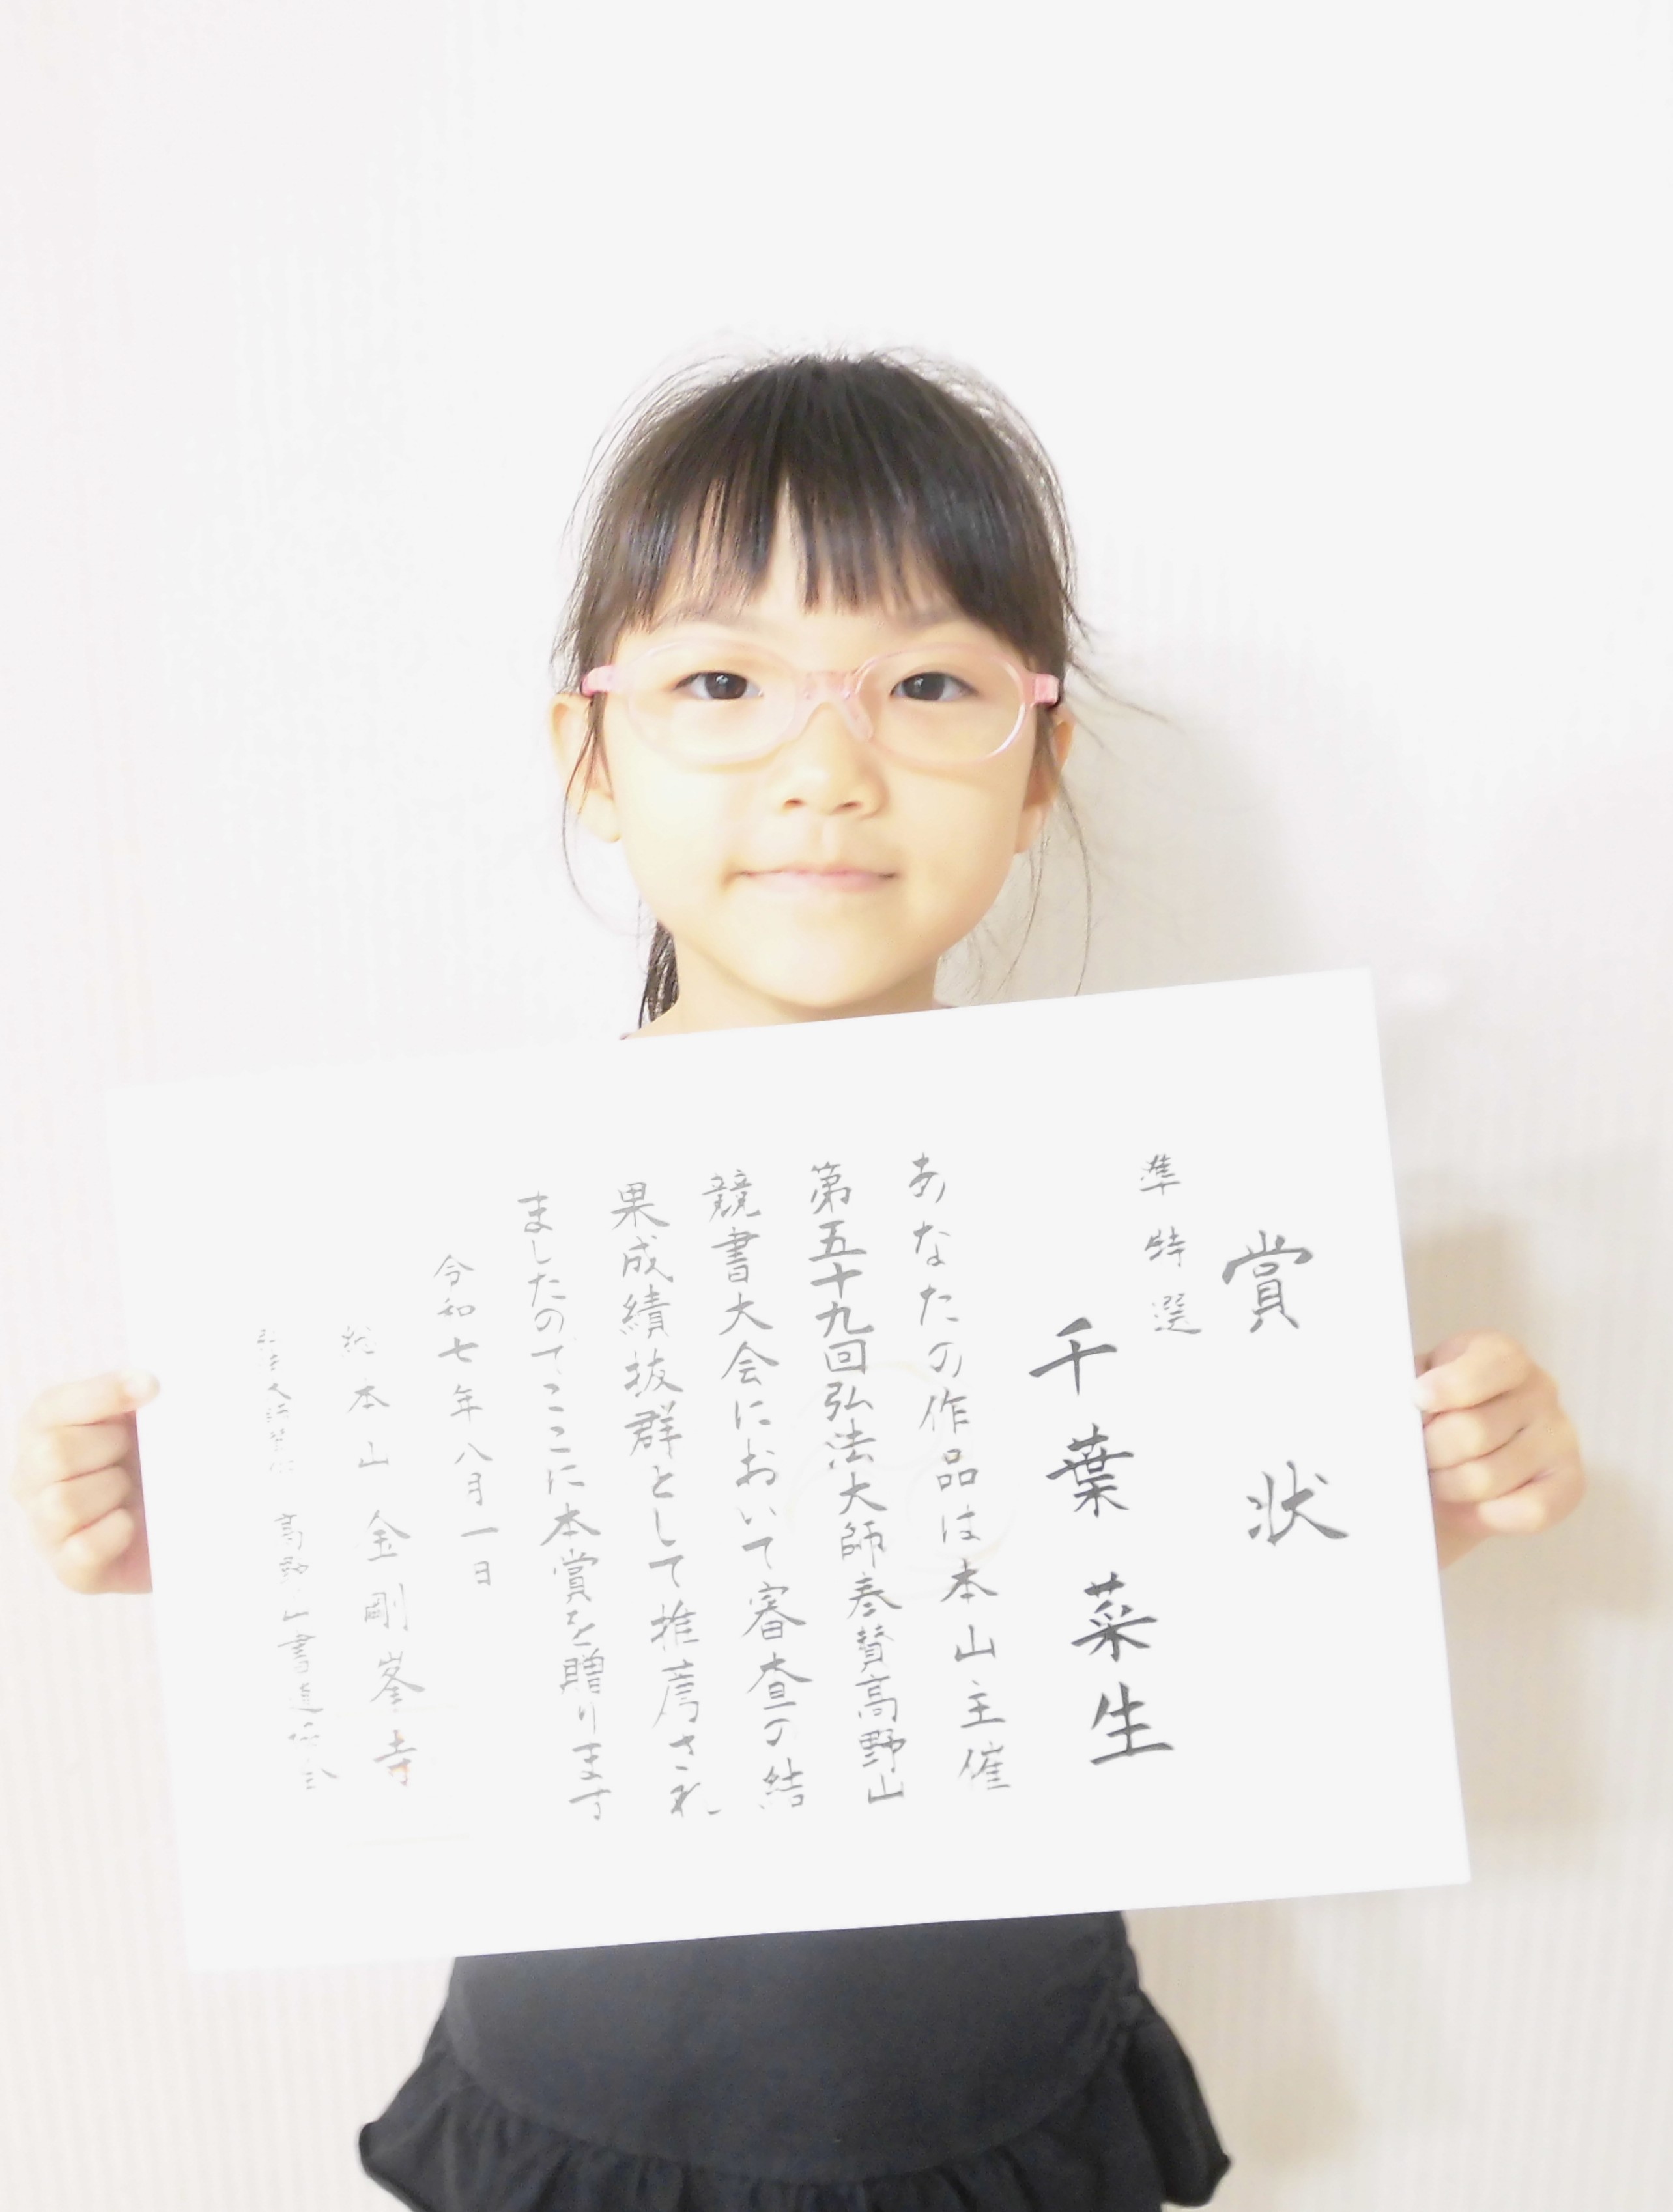 賞状
準特選
千葉菜生
あなたの作品は本山主催
第五十九回弘法大師奉賛高野山
競書大会において審査の結
果成績抜群として推薦され
ましたのでここに本賞を贈ります
令和七年八月一日
総本山金剛峯寺
弘法大師奉賛会 高野山書道協会